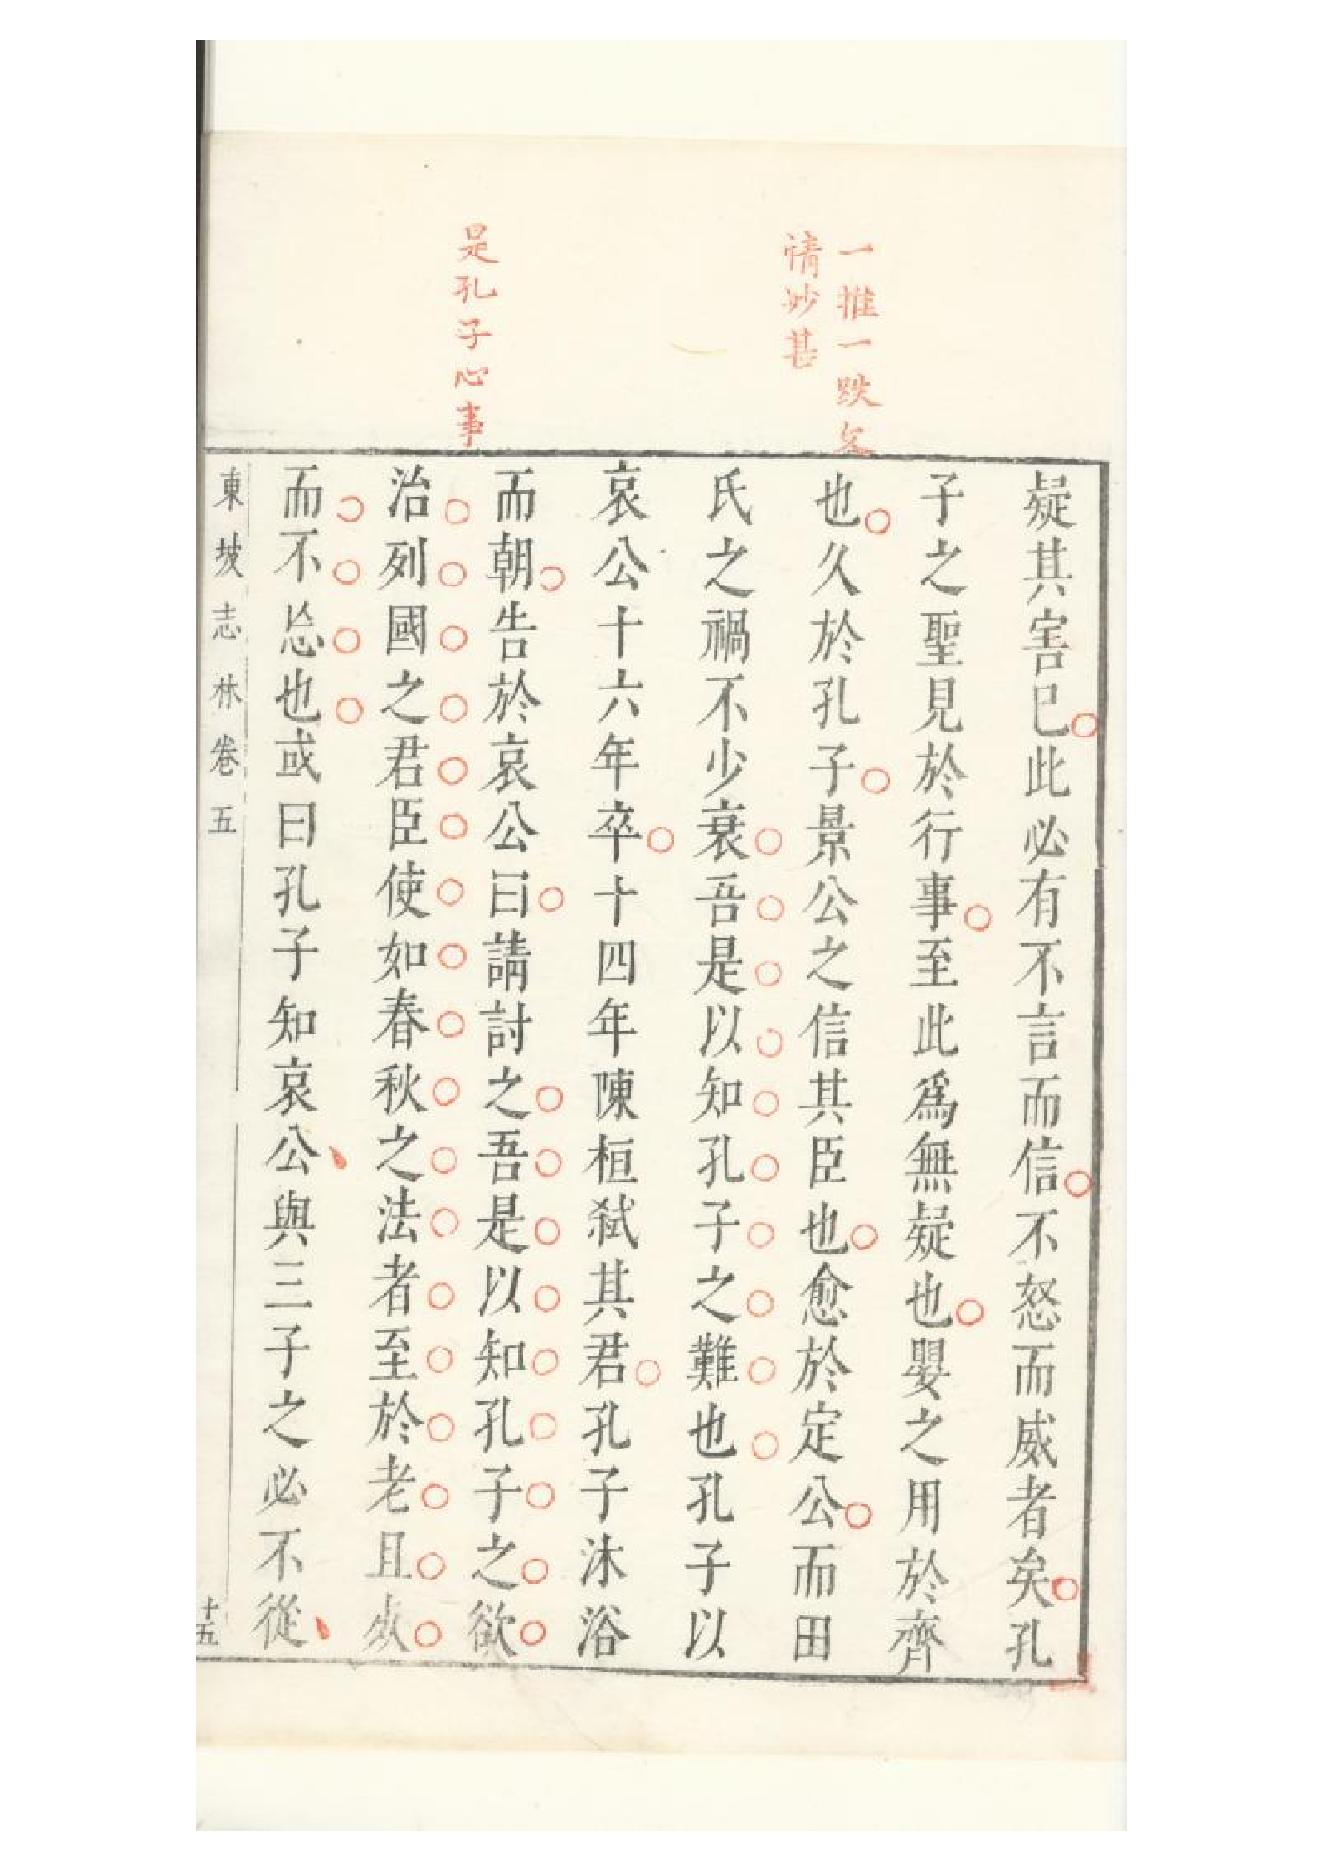 一推一跌
情妙甚
是孔子心事
疑其害已此必有不言而信不怒而威者矣孔
子之聖見於行事至此爲無疑也嬰之用於齊
也久於孔子景公之信其臣也愈於定公而田
氏之禍不少衰吾是以知孔子之難也孔子以
哀公十六年卒十四年陳桓弑其君孔子沐浴
而朝告於哀公曰請討之吾是以知孔子之欲
治列國之君臣使如春秋之法者至於老且
而不忘也或曰孔子知哀公與三子之必不從
東坡志林卷五
十五